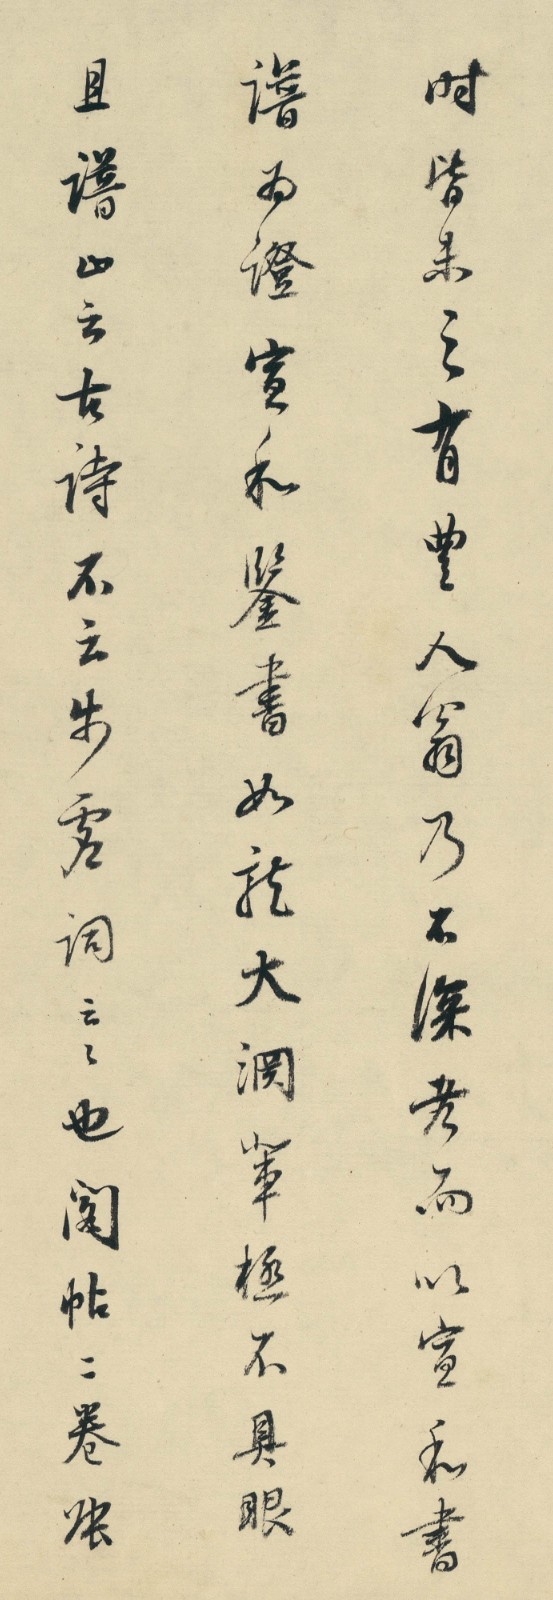 時皆未之有豐人翁乃不深考而以宣和書
譜為證宣和鑒書如龍大淵輩極不具眼
且譜止云古詩不云步虛詞云云也閣帖二卷張